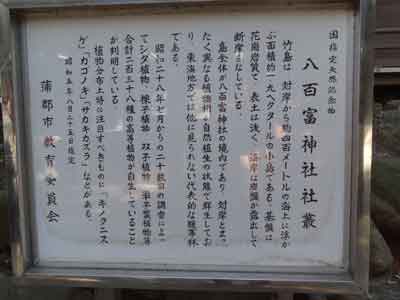 国指定天然記念物
八百富神社社叢
竹島は、対岸から約四百メートルの海上に浮か
ぶ面積約一・九ヘクタールの小島である。基盤は
花崗岩質で、表土は浅く、海岸は岩盤が露出して
断崖をなしている。
島全体が八百富神社の境内であり、対岸とまっ
たく異なる植物相が自然植生の状態で群生してお
り、東海地方では他に見られない代表的な樹叢林
である。
昭和二十八年七月からの二十数回の調査によっ
てシダ植物、裸子植物、双子植物、単子葉植物等
合計二百三十八種の高等植物が自生していること
が判明している。
植物分布上特に注目すべきものに「キノクニス
ゲ」「カゴノキ」「サカキカズラ」などがある。
昭和五年八月二十五日指定
蒲郡市教育委員会